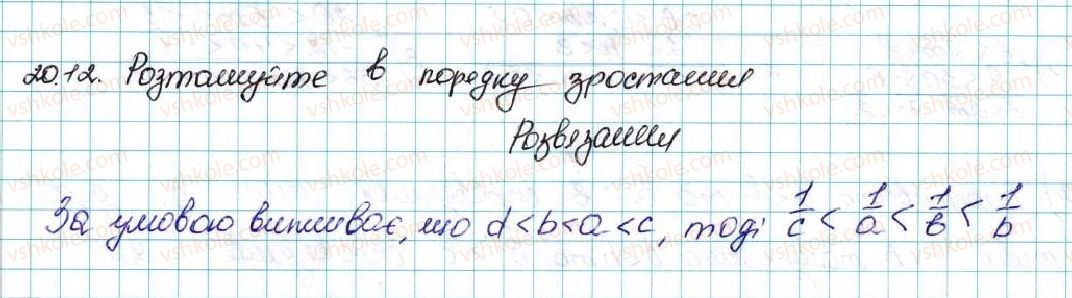 20.12. Розташуйте в порядку зростання
Розвязання
За умовою випливає, що d < b < a < c, тоді 1/c < 1/a < 1/в < 1/b